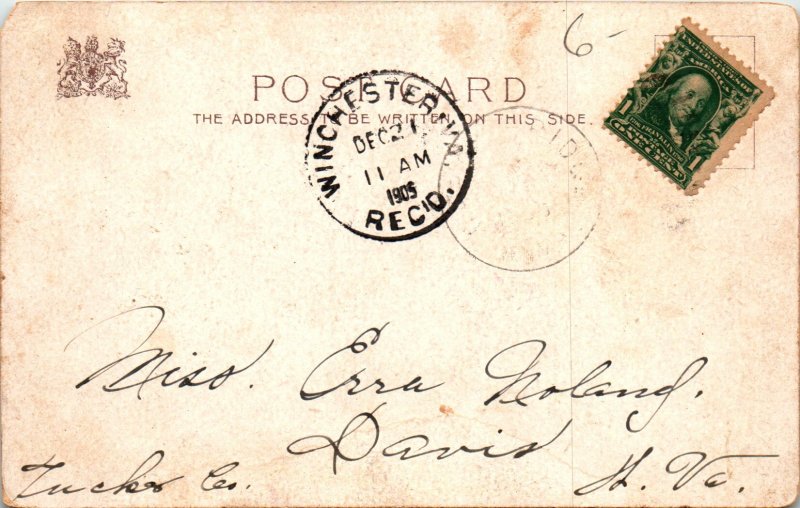 6
POST CARD
THE ADDRESS TO BE WRITTEN ON THIS SIDE.
WINCHESTER, VA.
DEC 21
11 AM
1905
REC'D.
1 1
Miss. Erra Noland,
Davis
Tucker Co. W. Va.